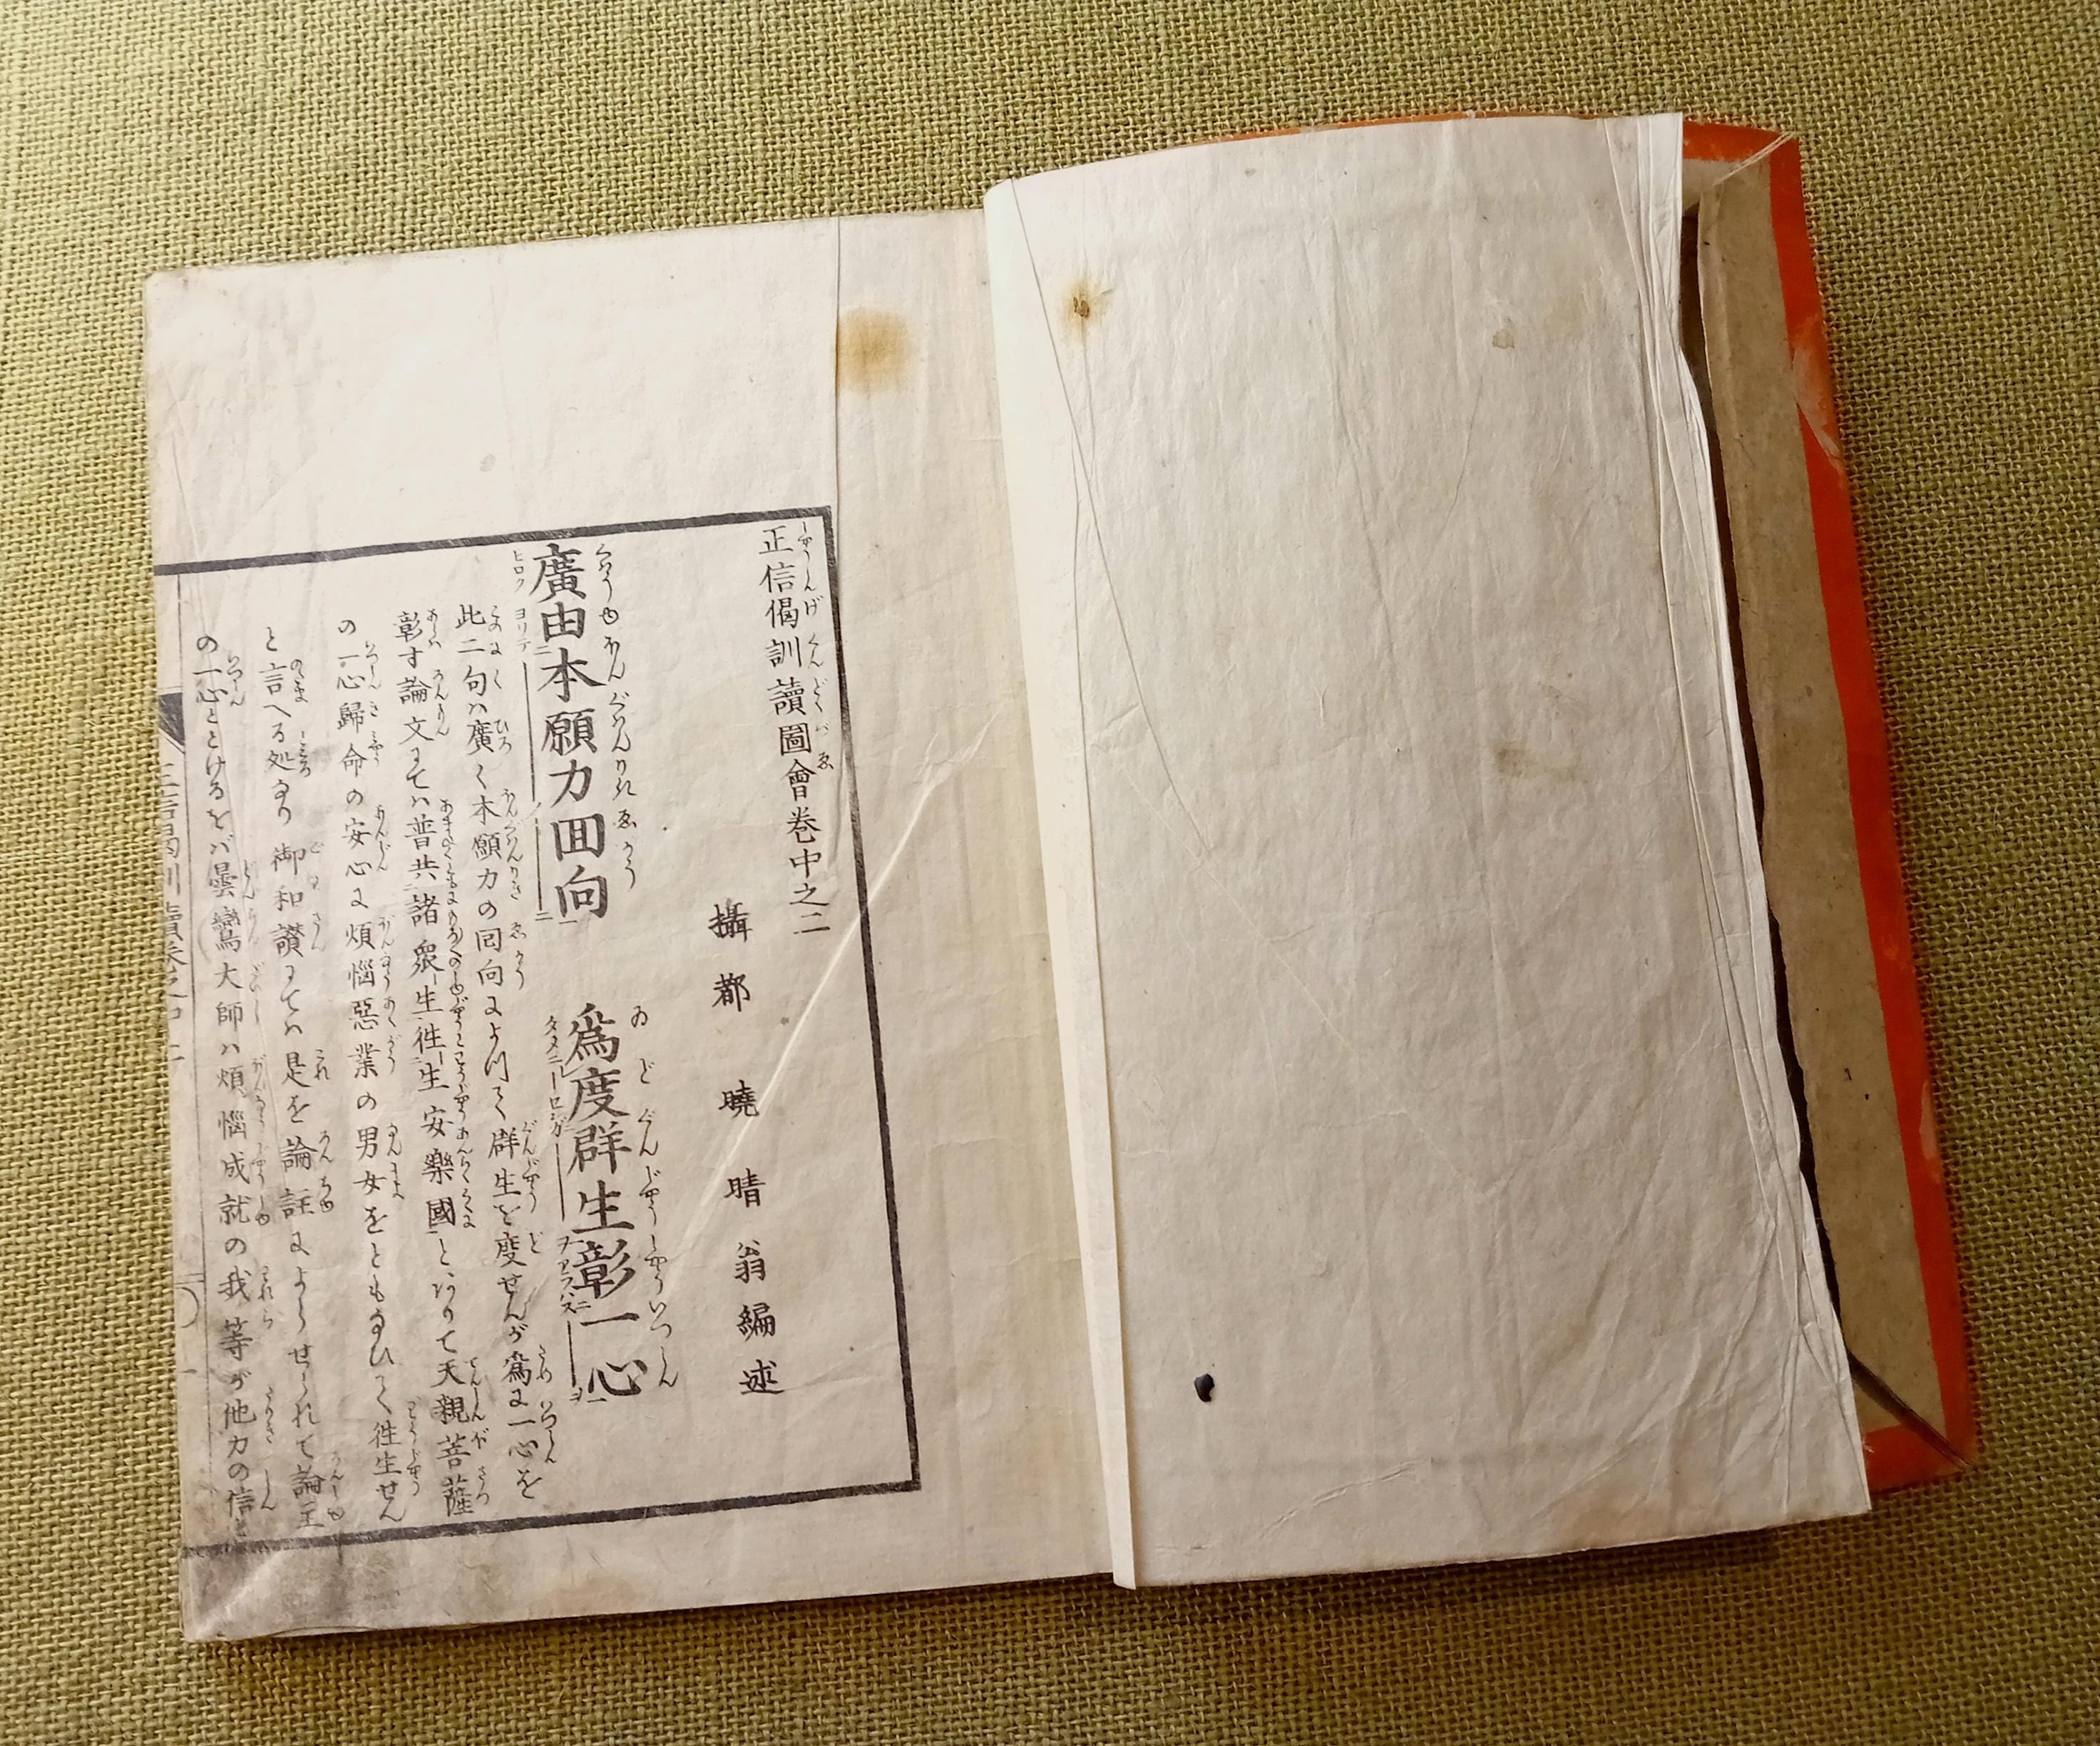 正信偈訓讀圖會巻中之二
攝都 曉晴翁編述
廣由本願力回向 爲度群生彰一心
此二句ハ廣く本願力の回向によりて群生を度せんが爲に一心を
彰す論文にてハ普共諸衆生往生安樂國とありて天親菩薩
の一心歸命の安心に煩惱惡業の男女をともなひて往生せん
と言へる処なり御和讃にてハ是を論註によらせられて論主
の一心ととけるをバ曇鸞大師ハ煩惱成就の我等が他力の信と